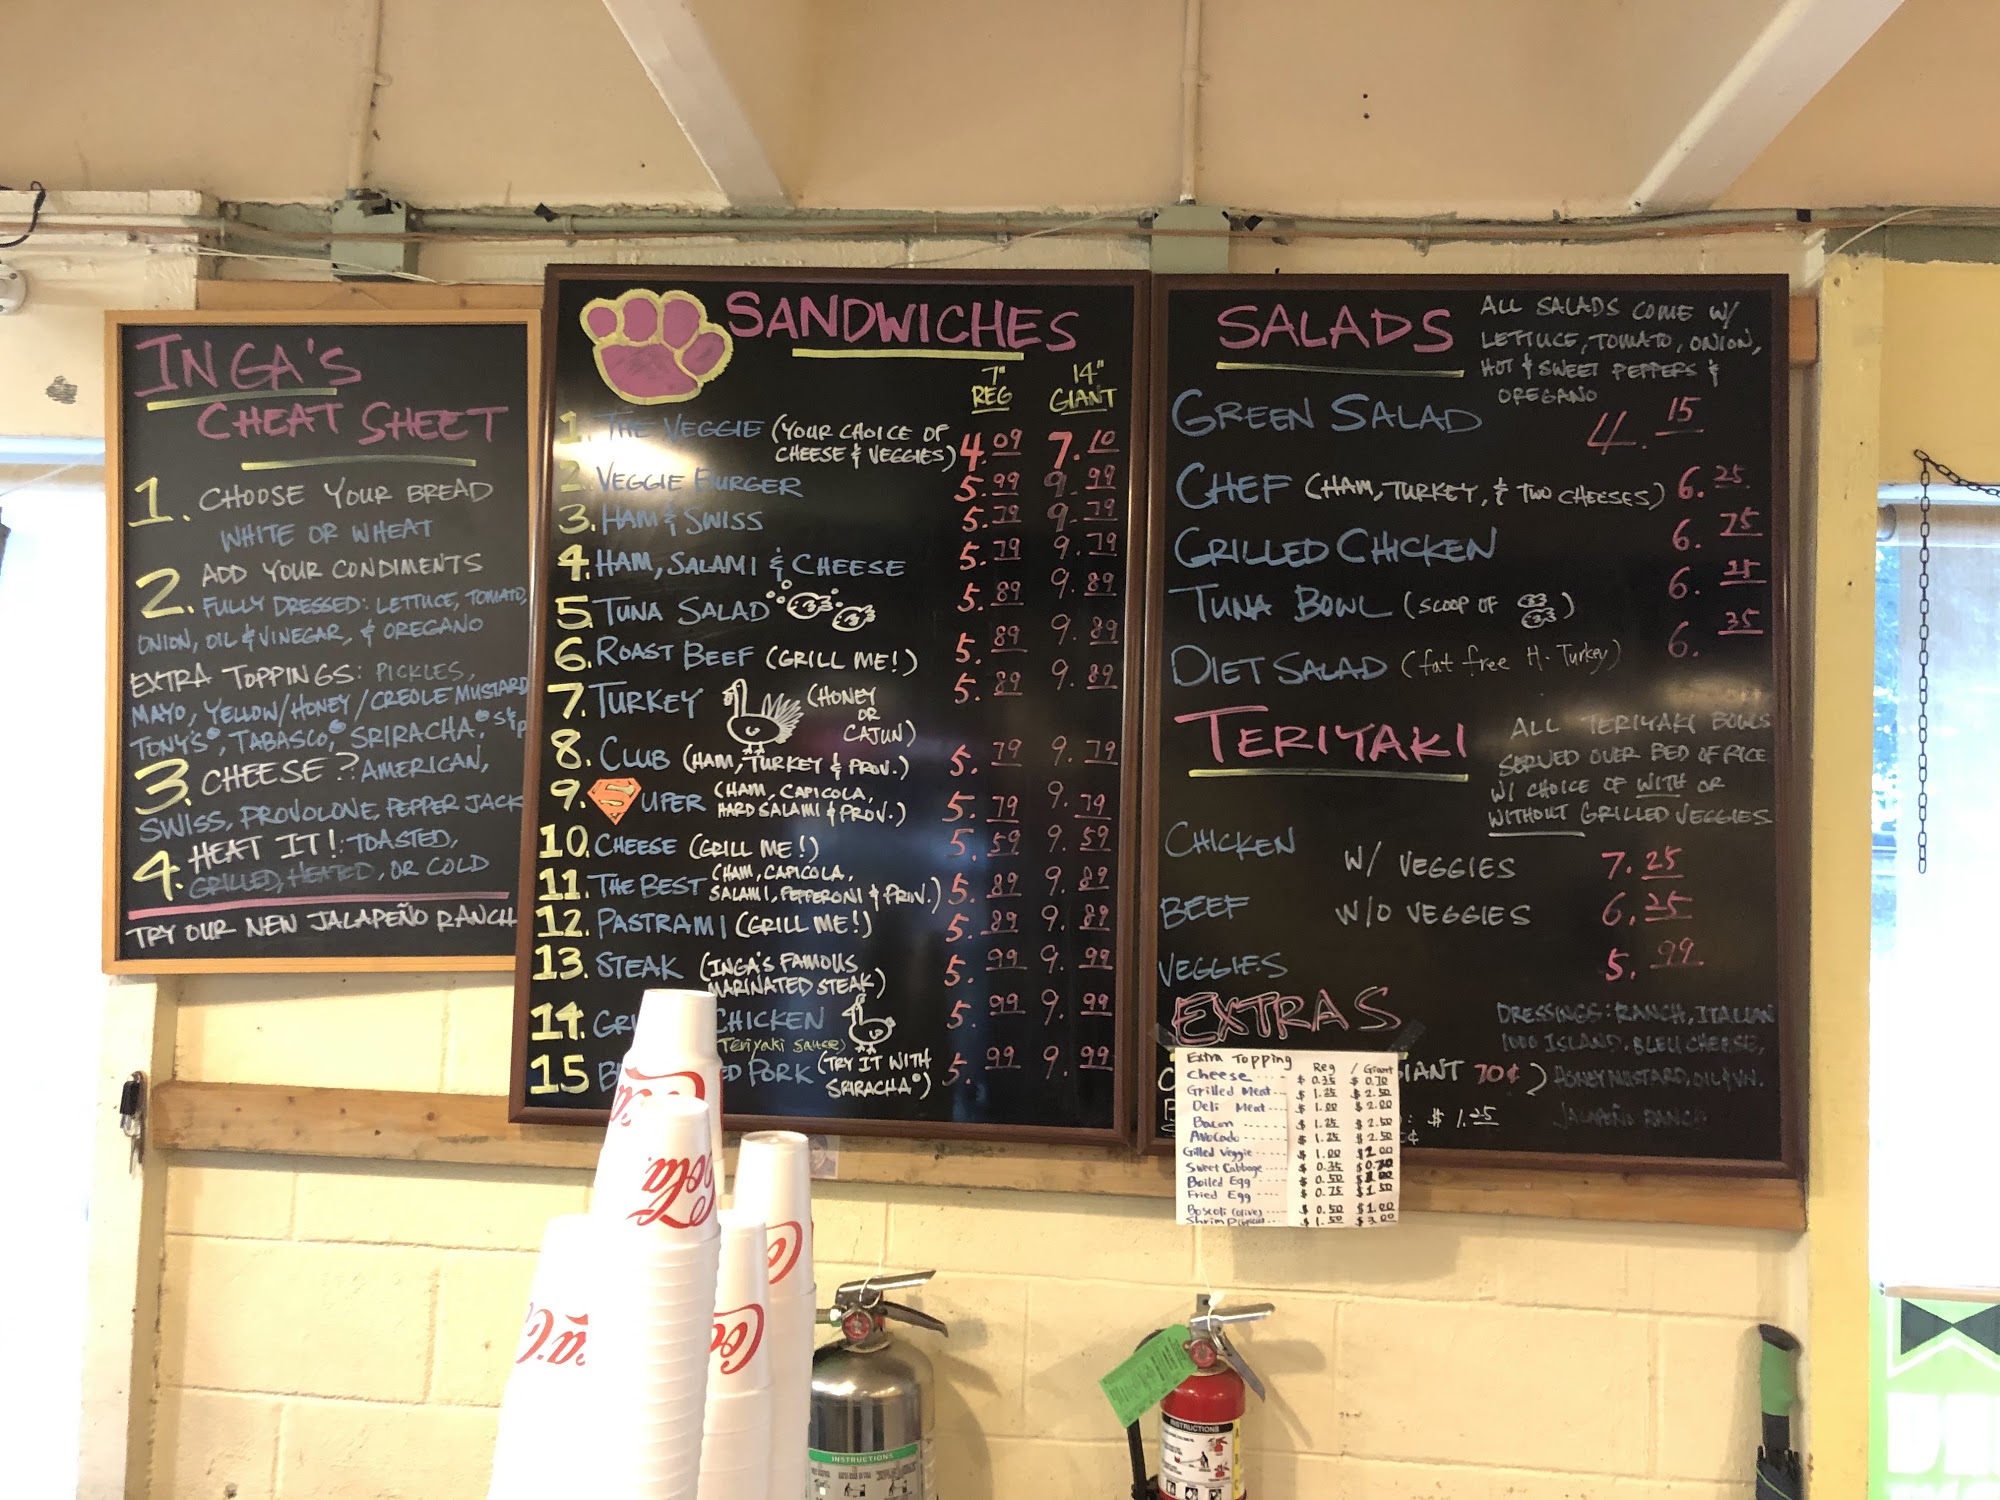 INGA'S
CHEAT SHEET
1. CHOOSE YOUR BREAD
WHITE OR WHEAT
2. ADD YOUR CONDIMENTS
FULLY DRESSED: LETTUCE, TOMATO,
ONION, OIL & VINEGAR, & OREGANO
EXTRA TOPPINGS: PICKLES,
MAYO, YELLOW/HONEY/CREOLE MUSTARD
TONY'S®, TABASCO,® SRIRACHA.® S&P
3. CHEESE? AMERICAN,
SWISS, PROVOLONE, PEPPER JACK
4. HEAT IT!: TOASTED,
GRILLED, HEATED, OR COLD
TRY OUR NEW JALAPEÑO RANCH
SANDWICHES
7" REG 14" GIANT
1. THE VEGGIE (YOUR CHOICE OF CHEESE & VEGGIES) 4.09 7.10
2. VEGGIE BURGER 5.99 9.99
3. HAM & SWISS 5.79 9.79
4. HAM, SALAMI & CHEESE 5.79 9.79
5. TUNA SALAD 5.89 9.89
6. ROAST BEEF (GRILL ME!) 5.89 9.89
7. TURKEY (HONEY OR CAJUN) 5.89 9.89
8. CLUB (HAM, TURKEY & PROV.) 5.79 9.79
9. SUPER (HAM, CAPICOLA, HARD SALAMI & PROV.) 5.79 9.79
10. CHEESE (GRILL ME!) 5.59 9.59
11. THE BEST (HAM, CAPICOLA, SALAMI, PEPPERONI & PROV.) 5.89 9.89
12. PASTRAMI (GRILL ME!) 5.89 9.89
13. STEAK (INGA'S FAMOUS MARINATED STEAK) 5.99 9.99
14. CHICKEN 5.99 9.99
Teriyaki sauce)
15 PORK (TRY IT WITH SRIRACHA®) 5.99 9.99
SALADS
ALL SALADS COME W/
LETTUCE, TOMATO, ONION,
HOT & SWEET PEPPERS &
OREGANO
GREEN SALAD 4.15
CHEF (HAM, TURKEY, & TWO CHEESES) 6.25
GRILLED CHICKEN 6.25
TUNA BOWL (SCOOP OF ) 6.25
DIET SALAD (fat free H. Turkey) 6.35
TERIYAKI
ALL TERIYAKI BOWLS
SERVED OVER BED OF RICE
W/ CHOICE OF WITH OR
WITHOUT GRILLED VEGGIES
CHICKEN W/ VEGGIES 7.25
BEEF W/O VEGGIES 6.25
VEGGIES 5.99
EXTRAS
DRESSINGS: RANCH, ITALIAN
1000 ISLAND, BLEU CHEESE,
HONEY MUSTARD, OIL & VN.
JALAPEÑO RANCH
GIANT 70¢)
: $1.25
Extra Topping Reg / Giant
cheese $0.35 $0.70
Grilled Meat $1.25 $2.50
Deli Meat $1.00 $2.00
Bacon $1.25 $2.50
Avocado $1.25 $2.50
Gilled Veggie $1.00 $2.00
Sweet Cabbage $0.35 $0.70
Boiled Egg $0.50 $1.00
Fried Egg $0.75 $1.50
Boscoli (olive) $0.50 $1.00
$1.50 $3.00
INSTRUCTIONS
INSTRUCTIONS